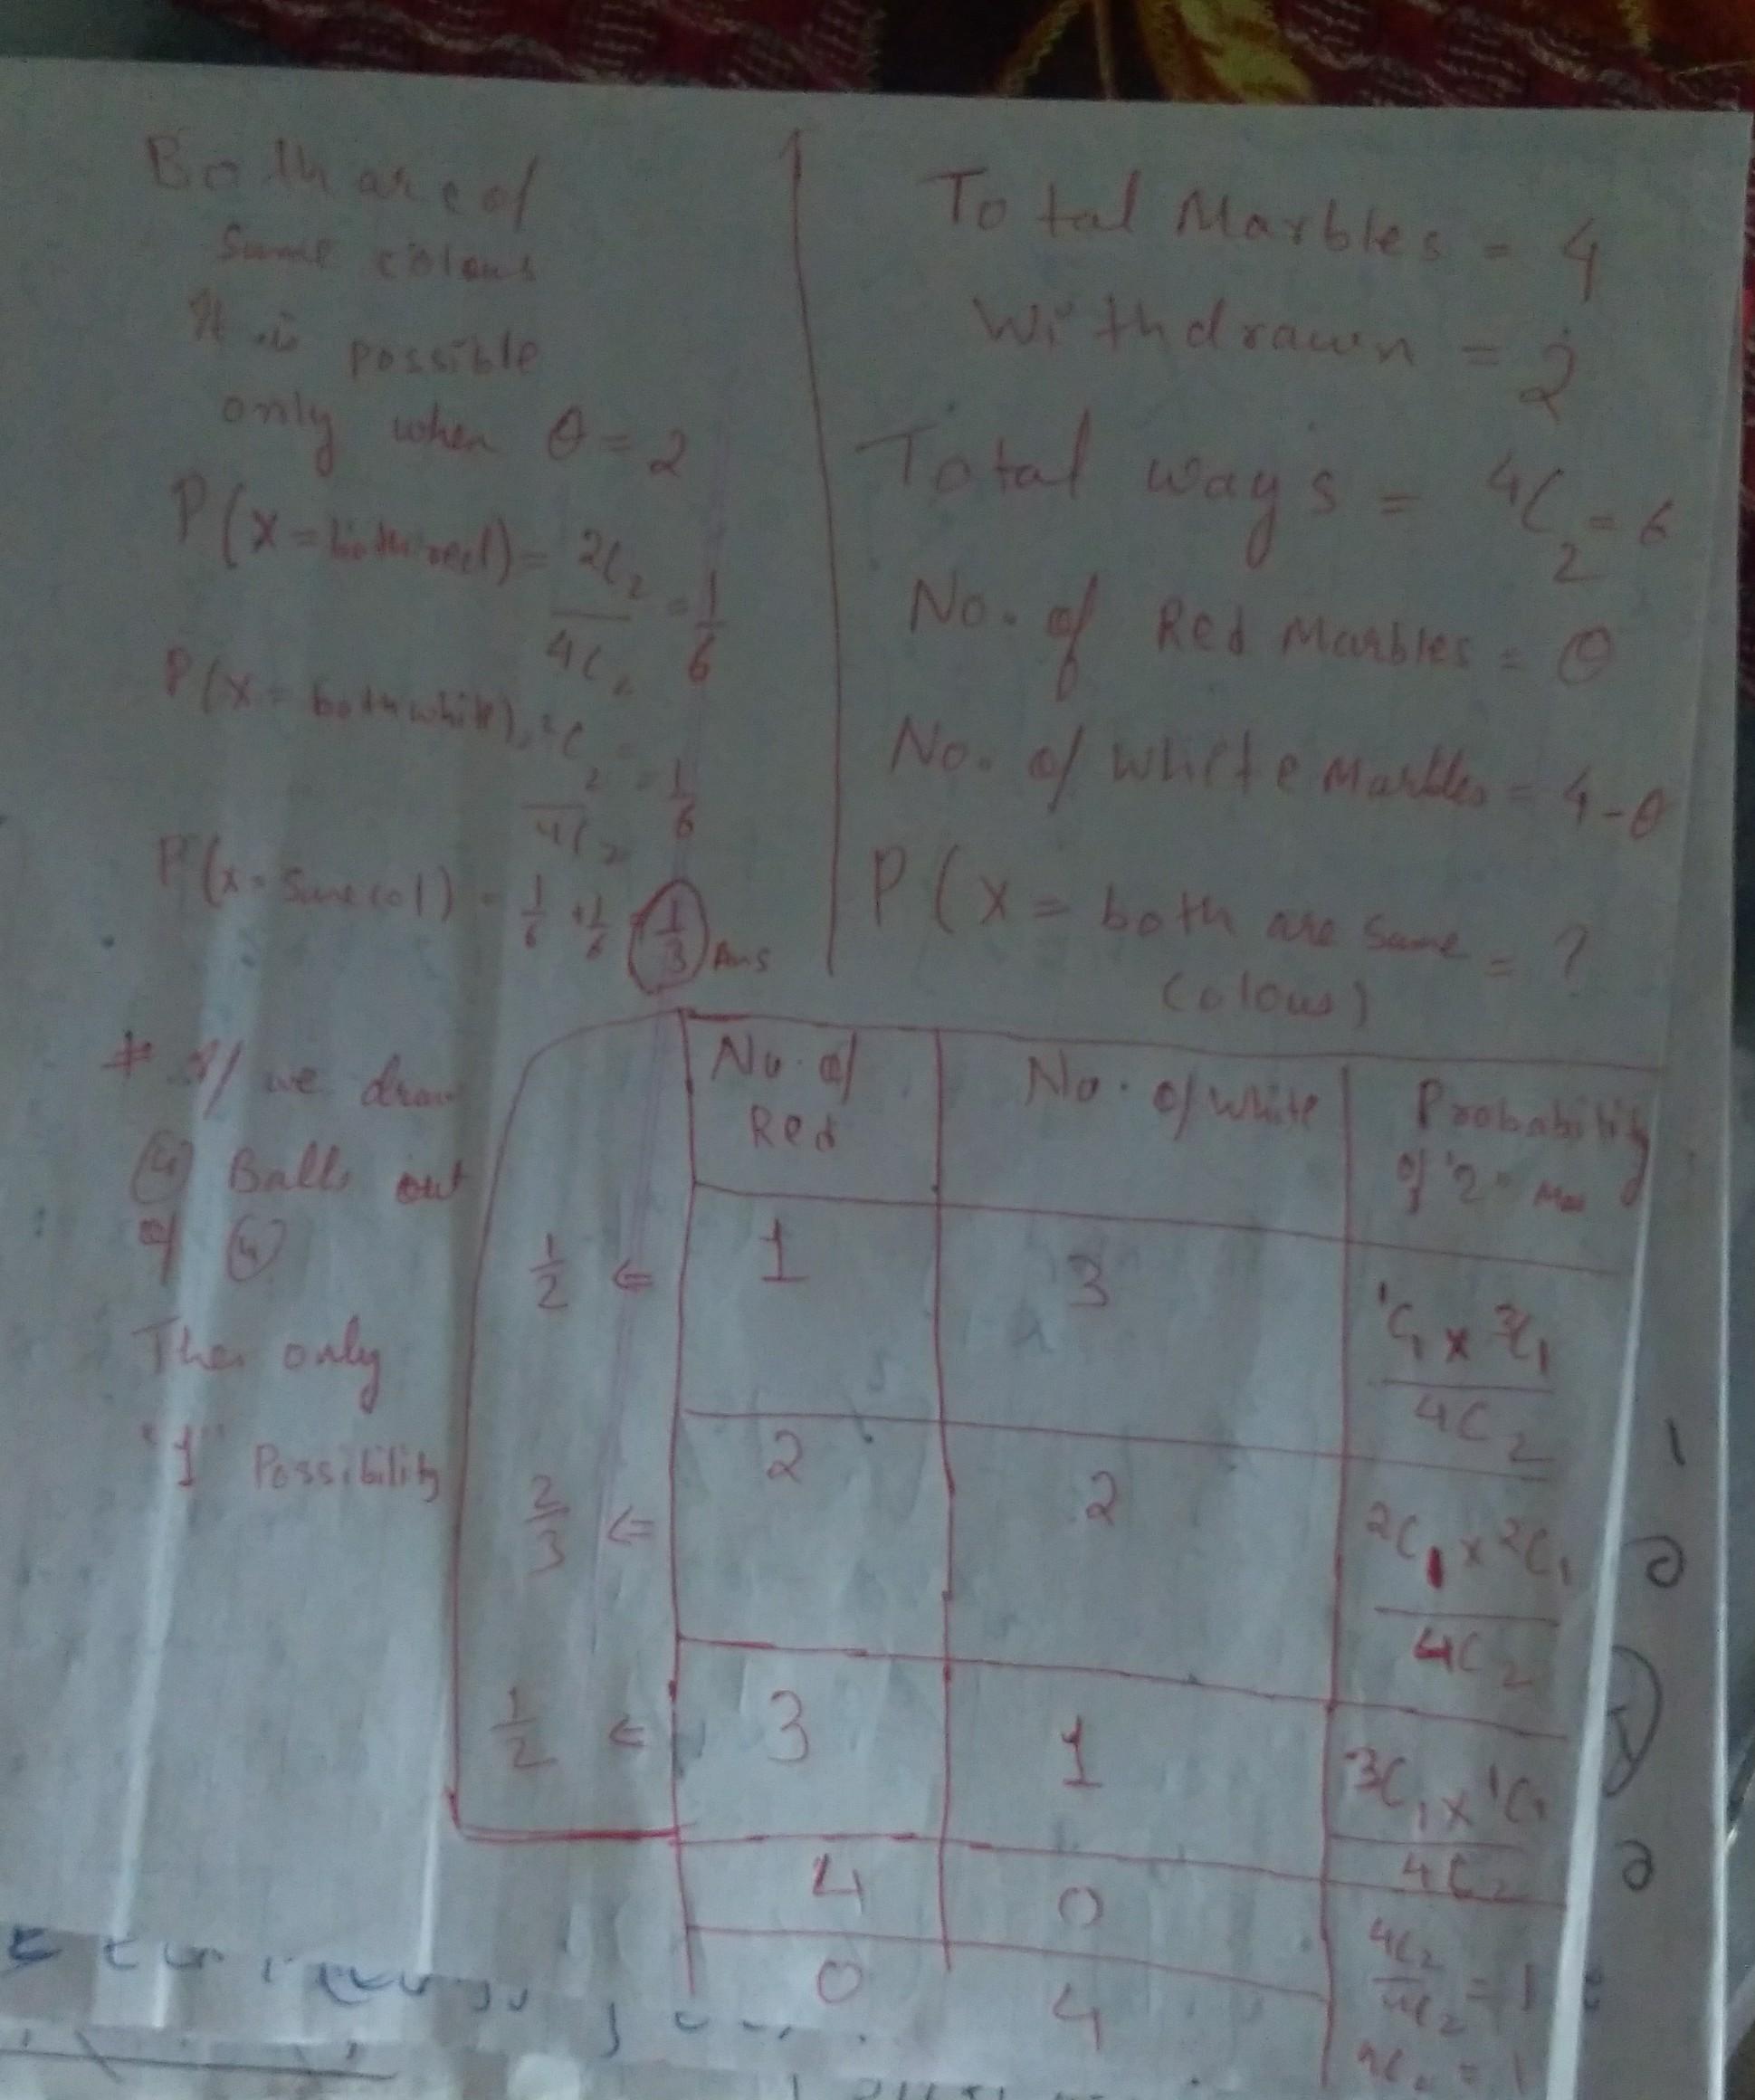 Both are of
Same colour
It is possible
only when θ = 2
P(X = both red) = 2C2 / 4C2 = 1/6
P(X = both white) = 2C2 / 4C2 = 1/6
P(X = Same col) = 1/6 + 1/6 = 1/3 Ans
Total Marbles = 4
Withdrawn = 2
Total ways = 4C2 = 6
No. of Red Marbles = θ
No. of White Marbles = 4-θ
P(X = both are Same = ?
Colour)
* If we draw
4 Balls out
of 4
Then only
"1" Possibility
No. of Red | No. of White | Probability of "2"
1/2 ⇐ 1 | 3 | 1C1 x 3C1 / 4C2
2/3 ⇐ 2 | 2 | 2C1 x 2C1 / 4C2
1/2 ⇐ 3 | 1 | 3C1 x 1C1 / 4C2
4 | 0 | 4C2 / 4C2 = 1
0 | 4 | = 1